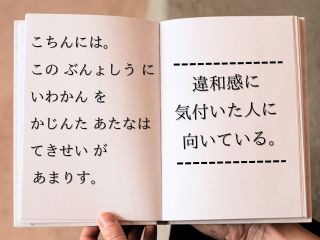 こちんには。
この ぶんょしう に
いわかん を
かじんた あたなは
てきせい が
あまりす。
違和感に
気付いた人に
向いている。